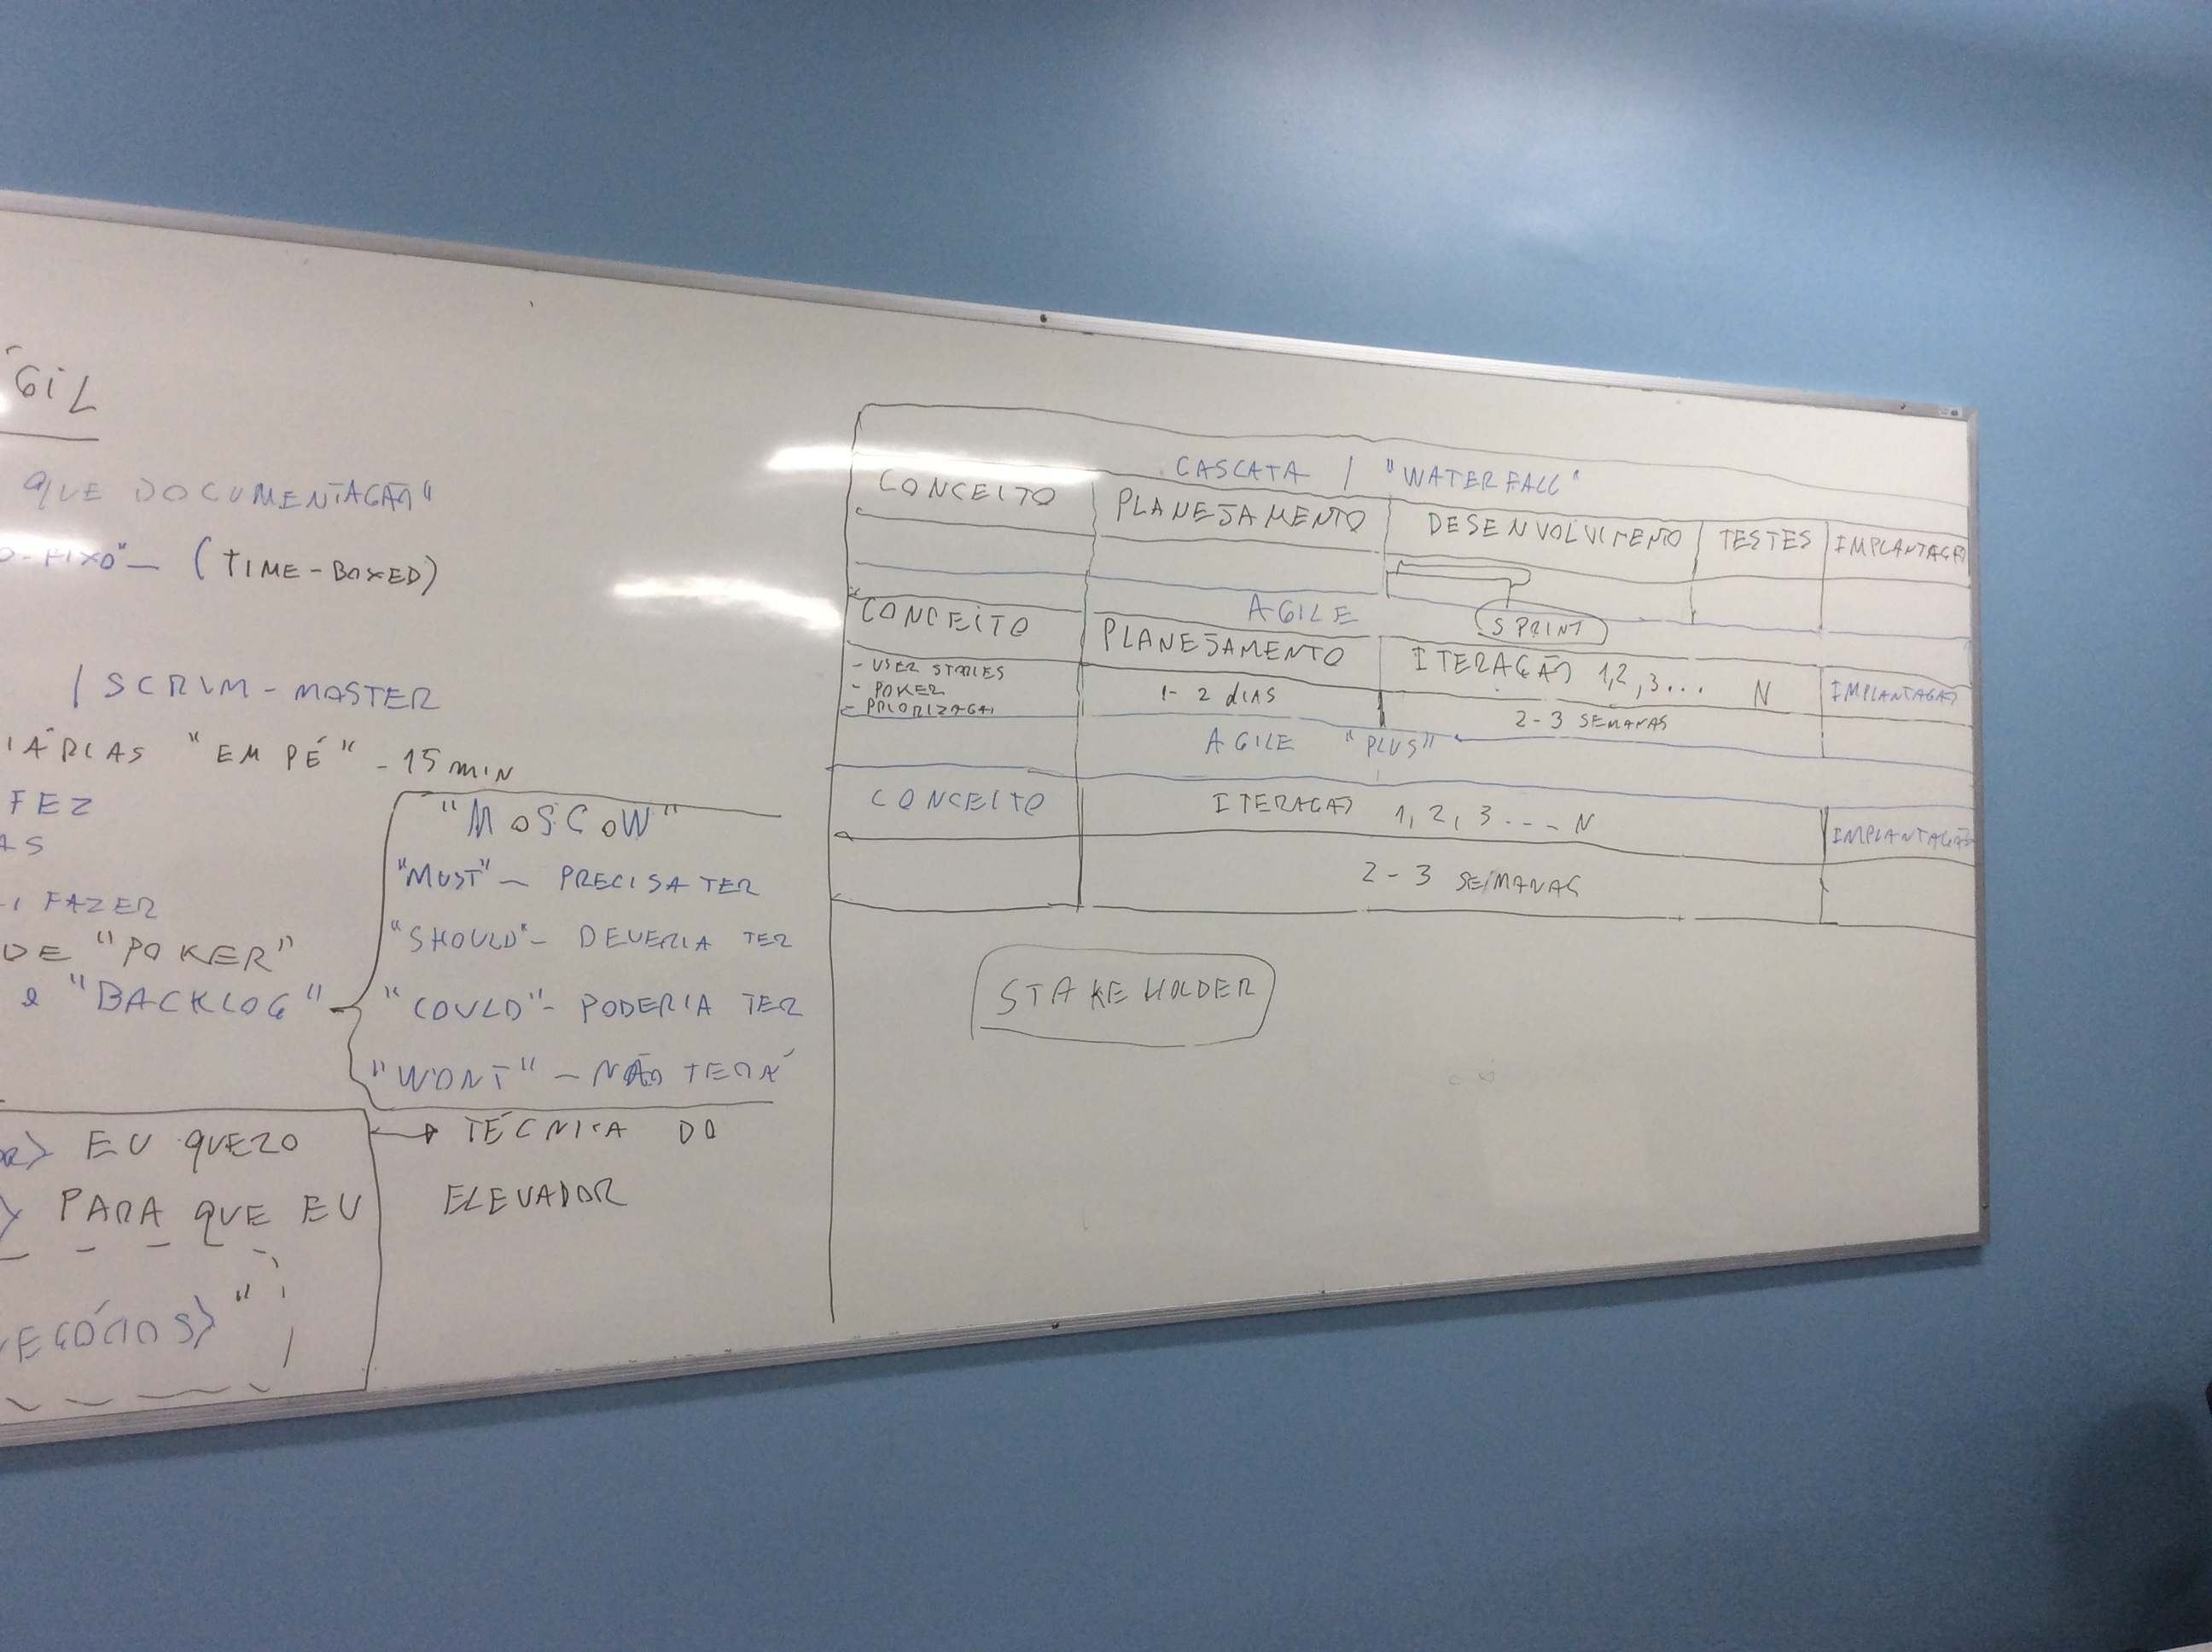 GIL
QUE DOCUMENTAÇÃO"
O-FIXO" — (TIME-BOXED)
/ SCRUM-MASTER
IÁRIAS "EM PÉ" - 15 MIN
FEZ
AS
I FAZER
DE "POKER"
e "BACKLOG"
"MoSCoW"
"MUST" — PRECISA TER
"SHOULD" - DEVERIA TER
"COULD" - PODERIA TER
"WONT" - NÃO TERÁ
EU QUERO
PARA QUE EU
EGÓCIOS>"
TÉCNICA DO
ELEVADOR
CASCATA / "WATERFALL"
CONCEITO PLANEJAMENTO DESENVOLVIMENTO TESTES IMPLANTAÇÃO
AGILE SPRINT
CONCEITO PLANEJAMENTO ITERAÇÃO 1,2,3... N IMPLANTAÇÃO
- USER STORIES
- POKER
- PRIORIZAÇÃO
1-2 dIAS
2-3 SEMANAS
AGILE "PLUS"
CONCEITO ITERAÇÃO 1,2,3...N IMPLANTAÇÃO
2-3 SEMANAS
STAKEHOLDER